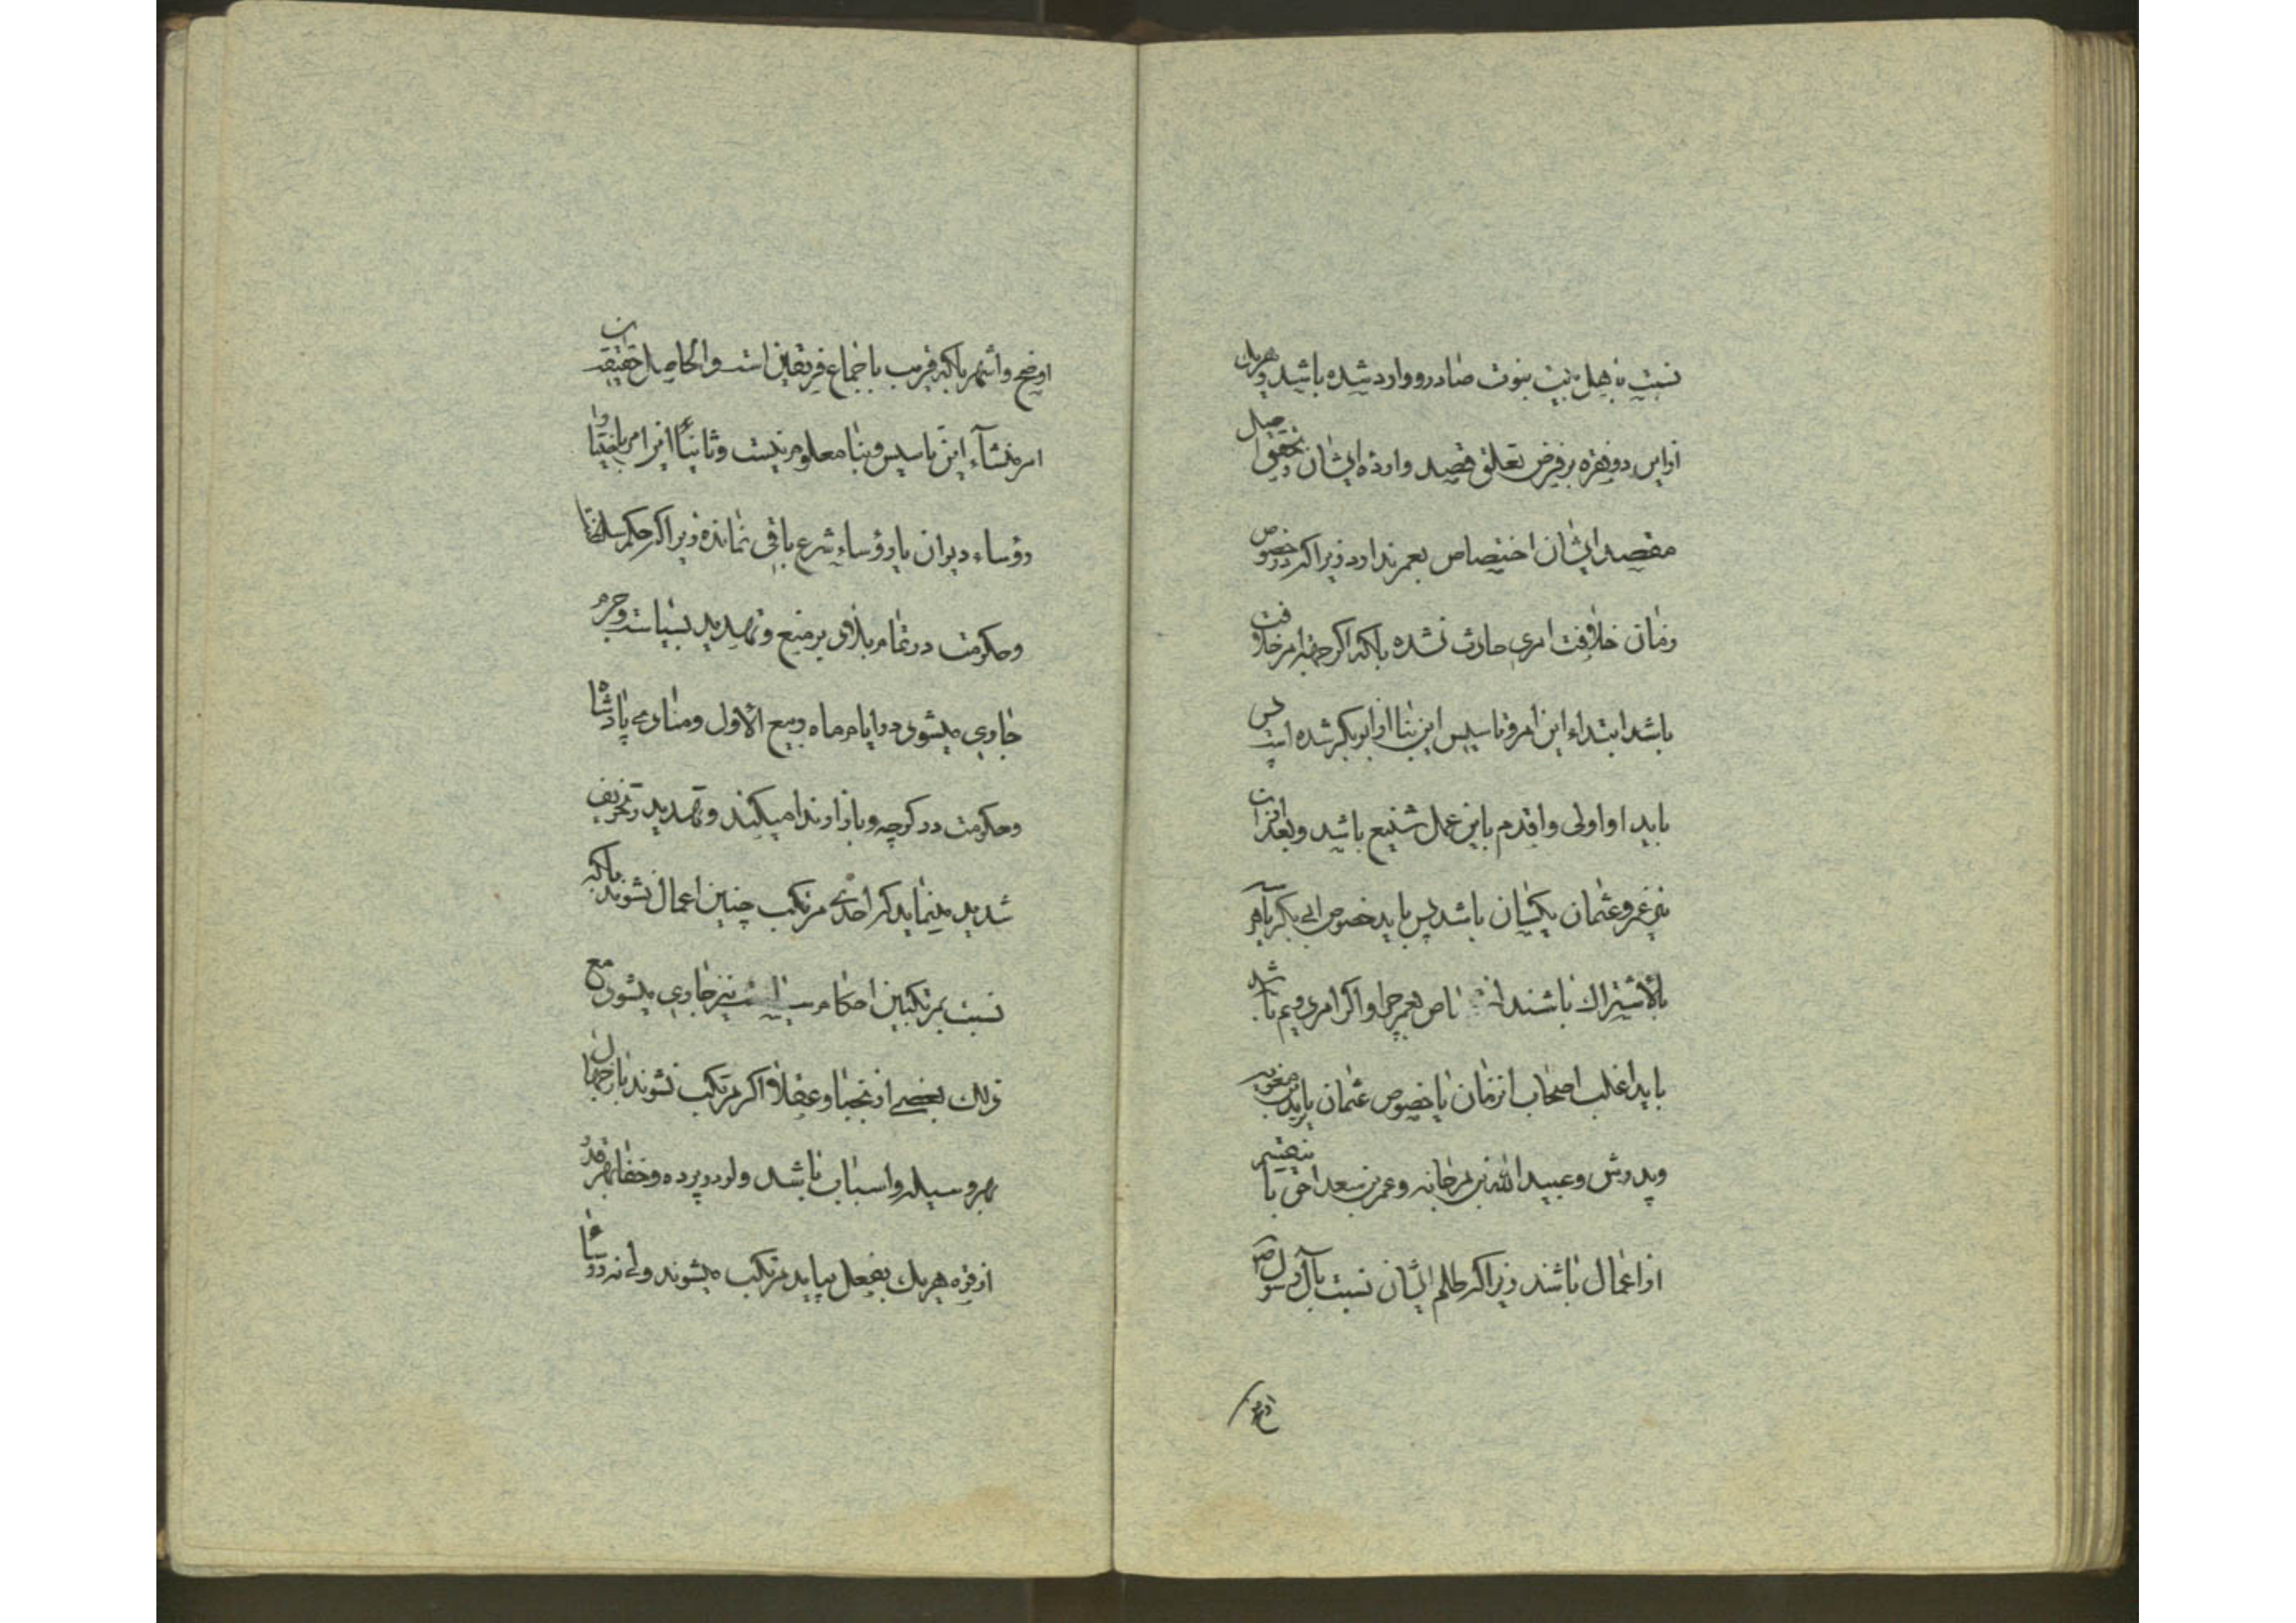 نسبت باهل بیت نبوت صادر و وارد شده باشد و هر یک
از این دو فقره بر فرض تعلق قصد و اراده ایشان و تحقیق اصل
مقصد ایشان اختصاص بعمر ندارد زیرا که در خصوص
زمان خلافت امری حادث نشده بلکه اگر جهة امر خلافت
باشد ابتداء این امر و تاسیس این بنا از ابو بکر شده است پس
باید او اولی و اقدم باین عمل شنیع باشد و بعد از آن
نیز عمر و عثمان یکسان باشد پس باید خصوص ابی بکر یا هر سه
بالاشتراک باشند اختصاص بعمر چرا و اگر امر دویم باشد
باید اغلب اصحاب انزمان یا خصوص عثمان یا یزید بن معویه
و پدرش و عبید الله بن مرجانه و عمر بن سعد احق باین قسم
از اعمال باشند زیرا که ظلم ایشان نسبت بآل رسول ص
اوضح
اوضح و اشهر بلکه قریب باجماع فریقین است و الحاصل حقیقة این
امر منشآء این تاسیس و بنا معلوم نیست و ثانیاً این امر باختیار
رؤساء دیوان یا رؤساء شرع باقی نمانده زیرا که حکم سلطان
و حکومت در تمام بلاد بر منع و تهدید بسیاست و جرم
جاری میشود در ایام ماه ربیع الاول و منادی پادشاه
و حکومت در کوچه و بازار ندا میکند و تهدید و تخویف
شدید مینماید که احدی مرتکب چنین اعمال نشوند بلکه
نسبت بمرتکبین احکام سیاست نیز جاری میشود مع
ذلک بعضی از نجبا و عقلا اگر مرتکب نشوند باز جهال
بهر وسیله و اسباب باشد ولو در پرده و خفا بهر قدر
از قوه هر یک بفعل بیاید مرتکب میشوند ولی نه رؤسا